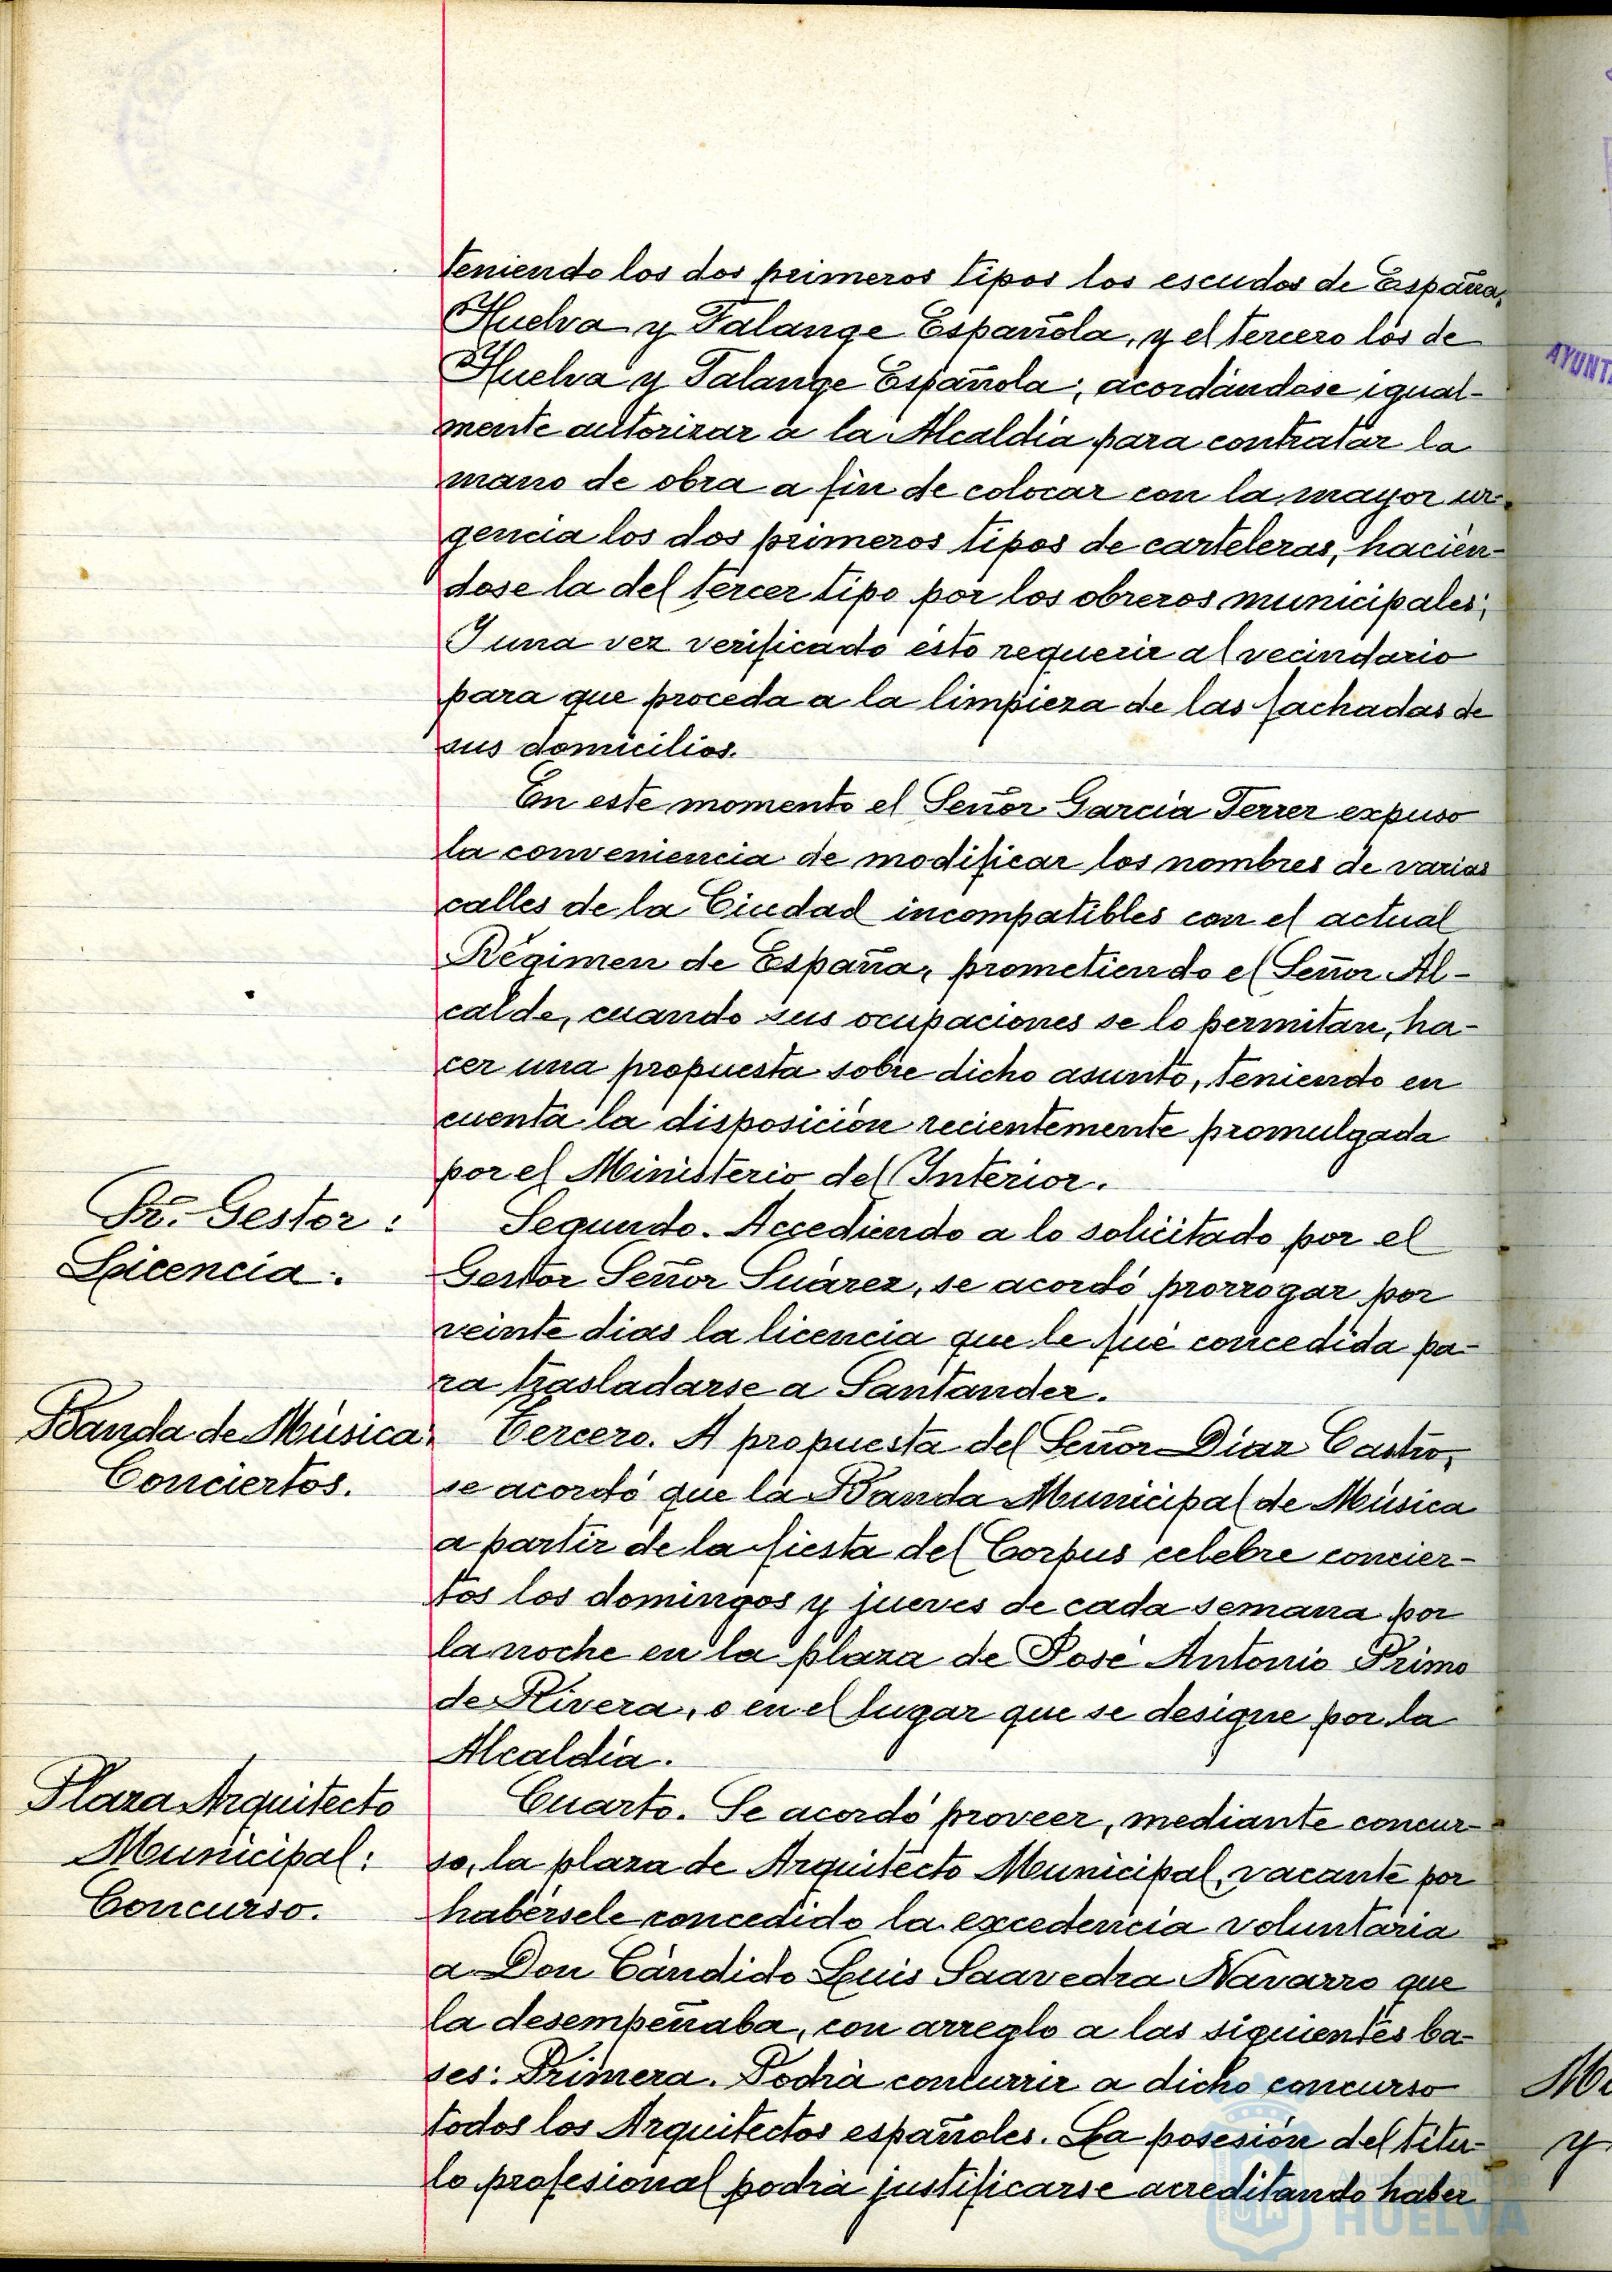 teniendo los dos primeros tipos los escudos de España,
Huelva y Falange Española, y el tercero los de
Huelva y Falange Española; acordándose igual-
mente autorizar a la Alcaldía para contratar la
mano de obra a fin de colocar con la mayor ur-
gencia los dos primeros tipos de carteleras, hacién-
dose la del tercer tipo por los obreros municipales;
Y una vez verificado ésto requerir al vecindario
para que proceda a la limpieza de las fachadas de
sus domicilios.
En este momento el Señor García Ferrer expuso
la conveniencia de modificar los nombres de varias
calles de la Ciudad incompatibles con el actual
Régimen de España, prometiendo el Señor Al-
calde, cuando sus ocupaciones se lo permitan, ha-
cer una propuesta sobre dicho asunto, teniendo en
cuenta la disposición recientemente promulgada
por el Ministerio del Interior.
Sr. Gestor:
Licencia.
Segundo. Accediendo a lo solicitado por el
Gestor Señor Suárez, se acordó prorrogar por
veinte dias la licencia que le fué concedida pa-
ra trasladarse a Santander.
Banda de Música.
Conciertos.
Tercero. A propuesta del Señor Díaz Castro,
se acordó que la Banda Municipal de Música
a partir de la fiesta del Corpus celebre concier-
tos los domingos y jueves de cada semana por
la noche en la plaza de José Antonio Primo
de Rivera, o en el lugar que se designe por la
Alcaldía.
Plaza Arquitecto
Municipal:
Concurso.
Cuarto. Se acordó proveer, mediante concur-
so, la plaza de Arquitecto Municipal, vacante por
habérsele concedido la excedencia voluntaria
a Don Cándido Luis Saavedra Navarro que
la desempeñaba, con arreglo a las siguientes ba-
ses: Primera. Podrá concurrir a dicho concurso
todos los Arquitectos españoles. La posesión del títu-
lo profesional podrá justificarse acreditando haber
Ayuntamiento de
HUELVA
AYUNTA
y